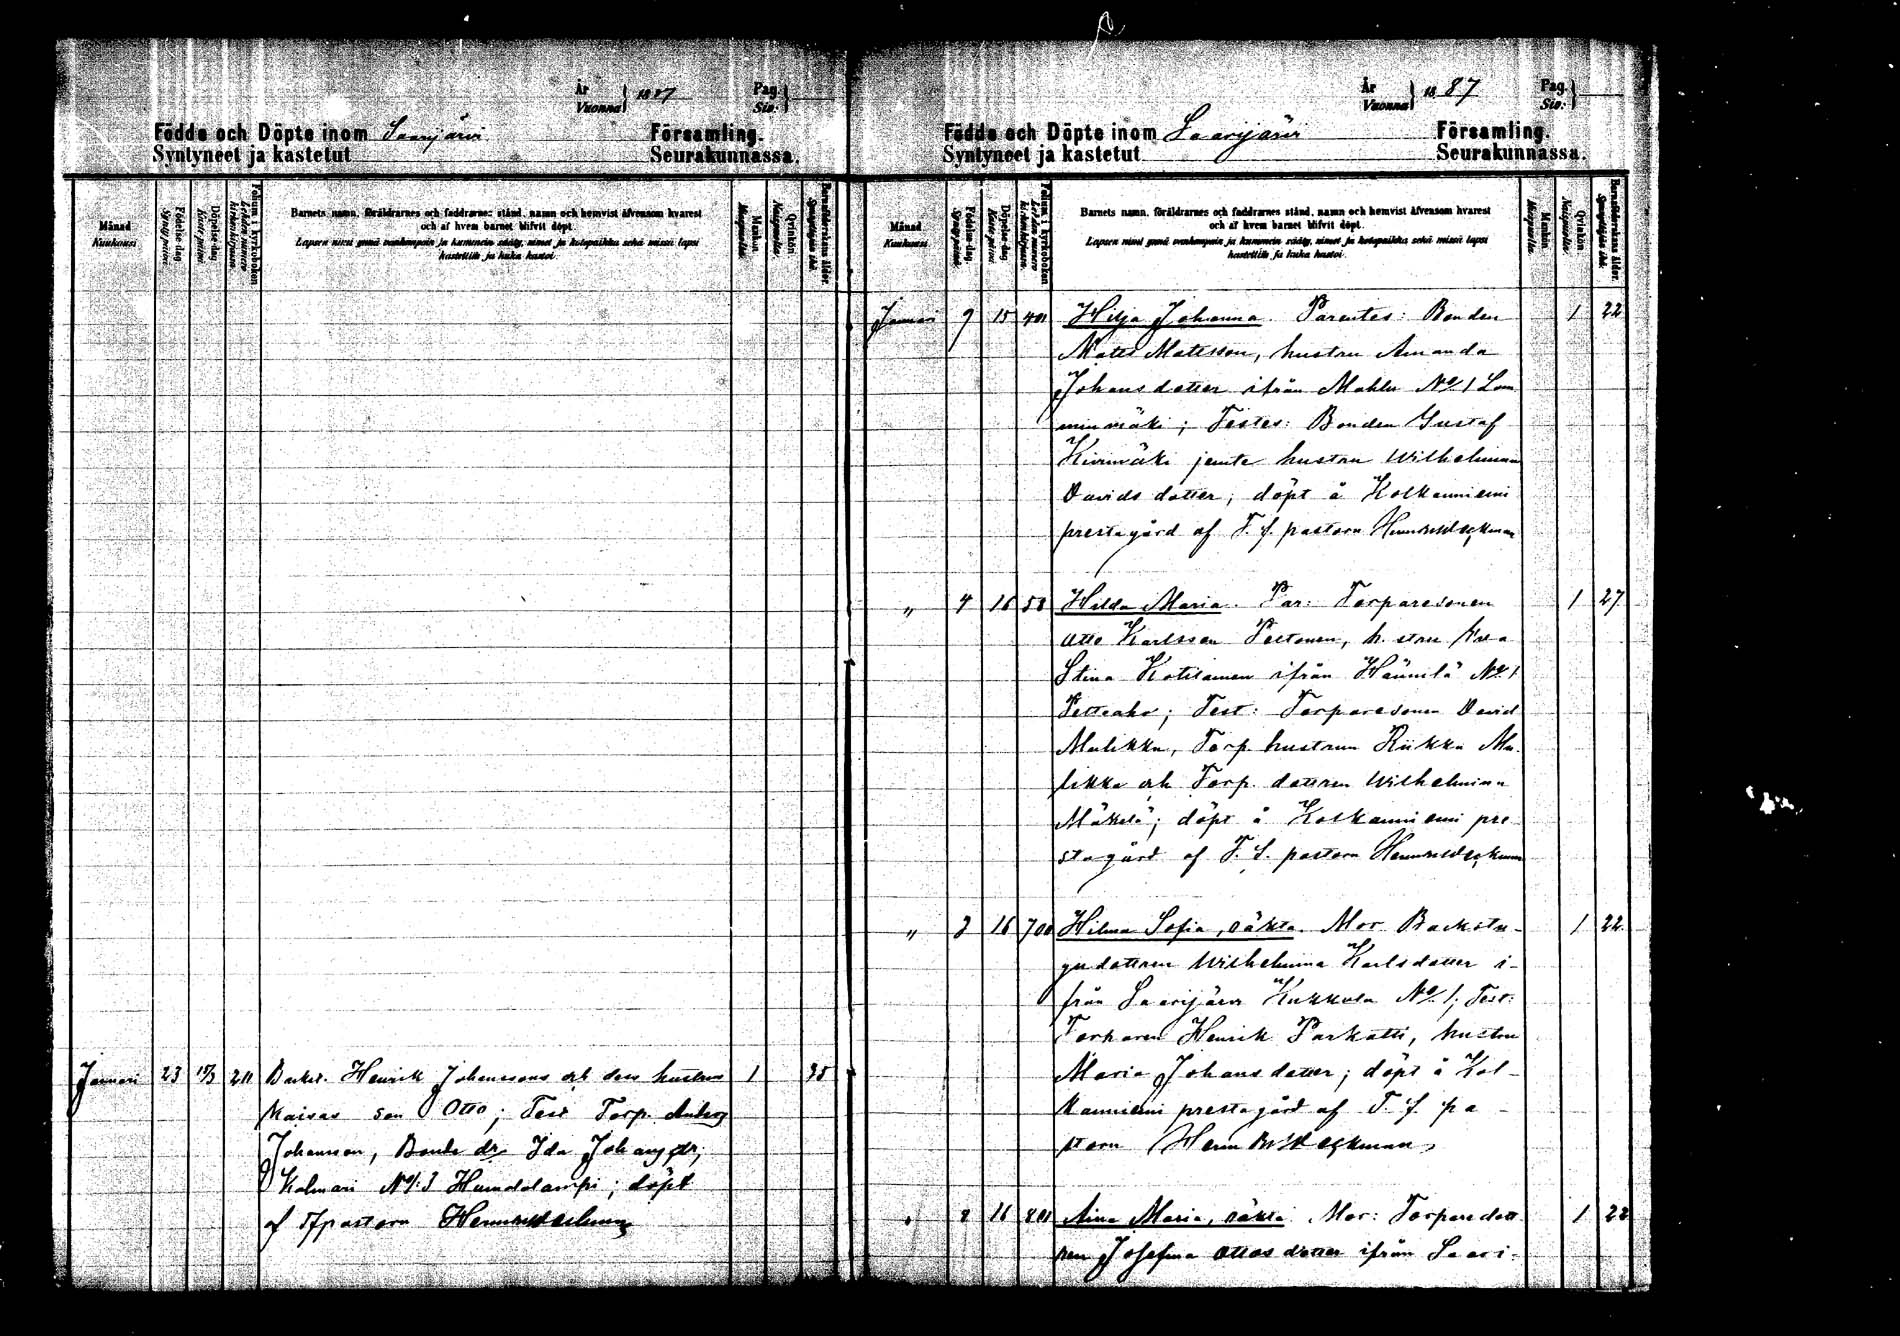 År
Vuonna } 1887
Pag.
Siv. }
Födde och Döpte inom Saarijärvi Församling.
Syntyneet ja kastetut Seurakunnassa.
Månad
Kuukausi
Födelse-dag
Syntymä-päivä.
Döpelse-dag
Kaste-päivä.
Folium i kyrkoboken
Lehden numero kirkonkirjassa.
Barnets namn, föräldrarnes och faddrarnes stånd, namn och hemvist äfvensom hvarest
och af hvem barnet blifvit döpt.
Lapsen nimi ynnä vanhempain ja kummein sääty, nimet ja kotopaikka sekä missä lapsi
kastettiin ja kuka kastoi.
Mankön
Miespuolia.
Qvinkön
Naispuolia.
Barnaföderskans ålder.
Januari 23 211 Backst. Henrik Johanssons och dess hustrus 1 35
Kaisas son Otto; Test Torp.
Johansson, Bonde dr Ida Johansdr;
Kolmari No 3 Humalalampi; döpt
af Tf pastorn Herm Br Weckman
År
Vuonna } 1887
Pag.
Siv. }
Födde och Döpte inom Saarijärvi Församling.
Syntyneet ja kastetut Seurakunnassa.
Månad
Kuukausi
Födelse-dag
Syntymä-päivä.
Döpelse-dag
Kaste-päivä.
Folium i kyrkoboken
Lehden numero kirkonkirjassa.
Barnets namn, föräldrarnes och faddrarnes stånd, namn och hemvist äfvensom hvarest
och af hvem barnet blifvit döpt.
Lapsen nimi ynnä vanhempain ja kummein sääty, nimet ja kotopaikka sekä missä lapsi
kastettiin ja kuka kastoi.
Mankön
Miespuolia.
Qvinkön
Naispuolia.
Barnaföderskans ålder.
Januari 9 15 401 Hilja Johanna. Parentes: Bonden 1 22
Matts Matsson, hustru Amanda
Johansdotter ifrån Mahlu No 1 Lam
minmäki; Testes: Bonden Gustaf
Kivimäki jemte hustru Wilhelmina
Davids dotter; döpt å Kolkanniemi
prestagård af T. f. pastorn Herm Br Weckman
" 4 16 58 Hilda Maria. Par: Torparesonen 1 27
Otto Karlsson Peltonen, h. stru Eva
Stina Kotilainen ifrån Hännilä No 1
Petteaho; Test: Torparesonen David
Malikka, Torp. hustrun Riikka Ma
likka och Torp. dottren Wilhelmina
Mäkelä; döpt å Kolkanniemi pre
stagård af T. f. pastorn Herm Br Weckman
" 3 16 700 Hilma Sofia, oäkta. Mor Backstu- 1 22
gu dottren Wilhelmina Karlsdotter i-
från Saarijärvi Kukkola No 1; Test:
Torparen Henrik Parkatti, hustru
Maria Johansdotter; döpt å Kol-
kanniemi prestagård af T. f. pa-
storn Herm Br Weckman
" 8 16 801 Aina Maria, oäkta. Mor: Torparedott 1 22
ren Josefina Ottosdotter ifrån Saari-